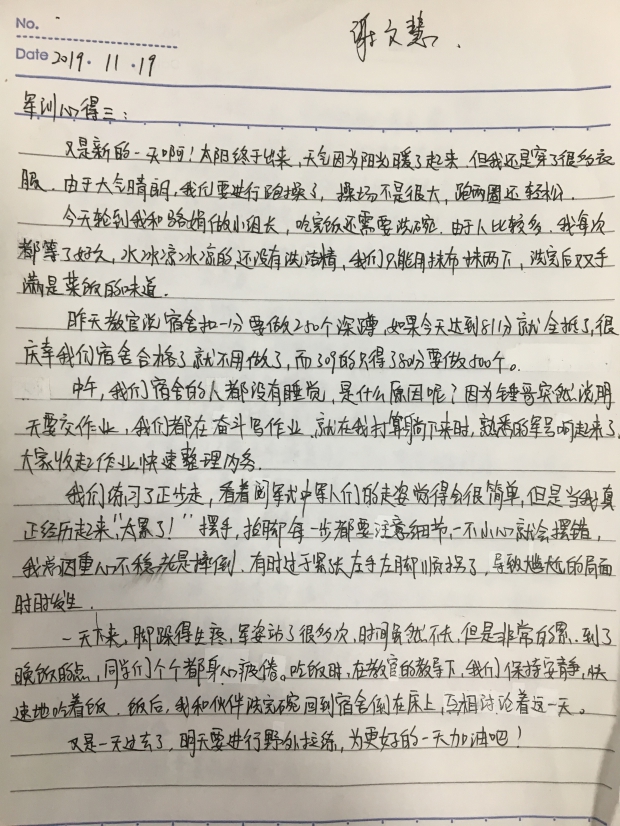 No.
谢文慧.
Date 2019.11.19
军训心得三:
又是新的一天啊!太阳终于出来,天气因为阳光暖了起来,但我还是穿了很多衣
服。由于天气晴朗,我们要进行跑操了,操场不是很大,跑两圈还轻松.
今天轮到我和 娟做小组长,吃完饭还需要洗碗.由于人比较多,我每次
都等了好久,水冰凉冰凉的,还没有洗洁精,我们只能用抹布抹两下,洗完后双手
满是菜饭的味道.
昨天教官说宿舍扣一分要做250个深蹲,如果今天达到811分就全抵了,很
庆幸我们宿舍合格了就不用做了,而309的只得了 分要做500个。
中午,我们宿舍的人都没有睡觉,是什么原因呢?因为 哥突然说明
天要交作业,我们都在奋斗写作业,就在我打算躺下来时,熟悉的军号响起来了,
大家收起作业快速整理内务.
我们练习了正步走,看着阅兵式中军人们的走姿觉得会很简单,但是当我真
正经历起来"太累了!"摆手,抬脚每一步都要注意细节,一不小心就会摆错,
我常因重心不稳老是摔倒.有时过于紧张左手左脚顺拐了,导致尴尬的局面
时时发生.
一天下来,脚跺得生疼,军姿站了很多次,时间虽然不长,但是非常的累.到了
晚饭的点,同学们个个都身心疲倦。吃饭时,在教官的教导下,我们保持安静,快
速地吃着饭.饭后,我和伙伴洗完碗回到宿舍倒在床上,互相讨论着这一天。
又是一天过去了,明天要进行野外拉练,为更好的一天加油吧!